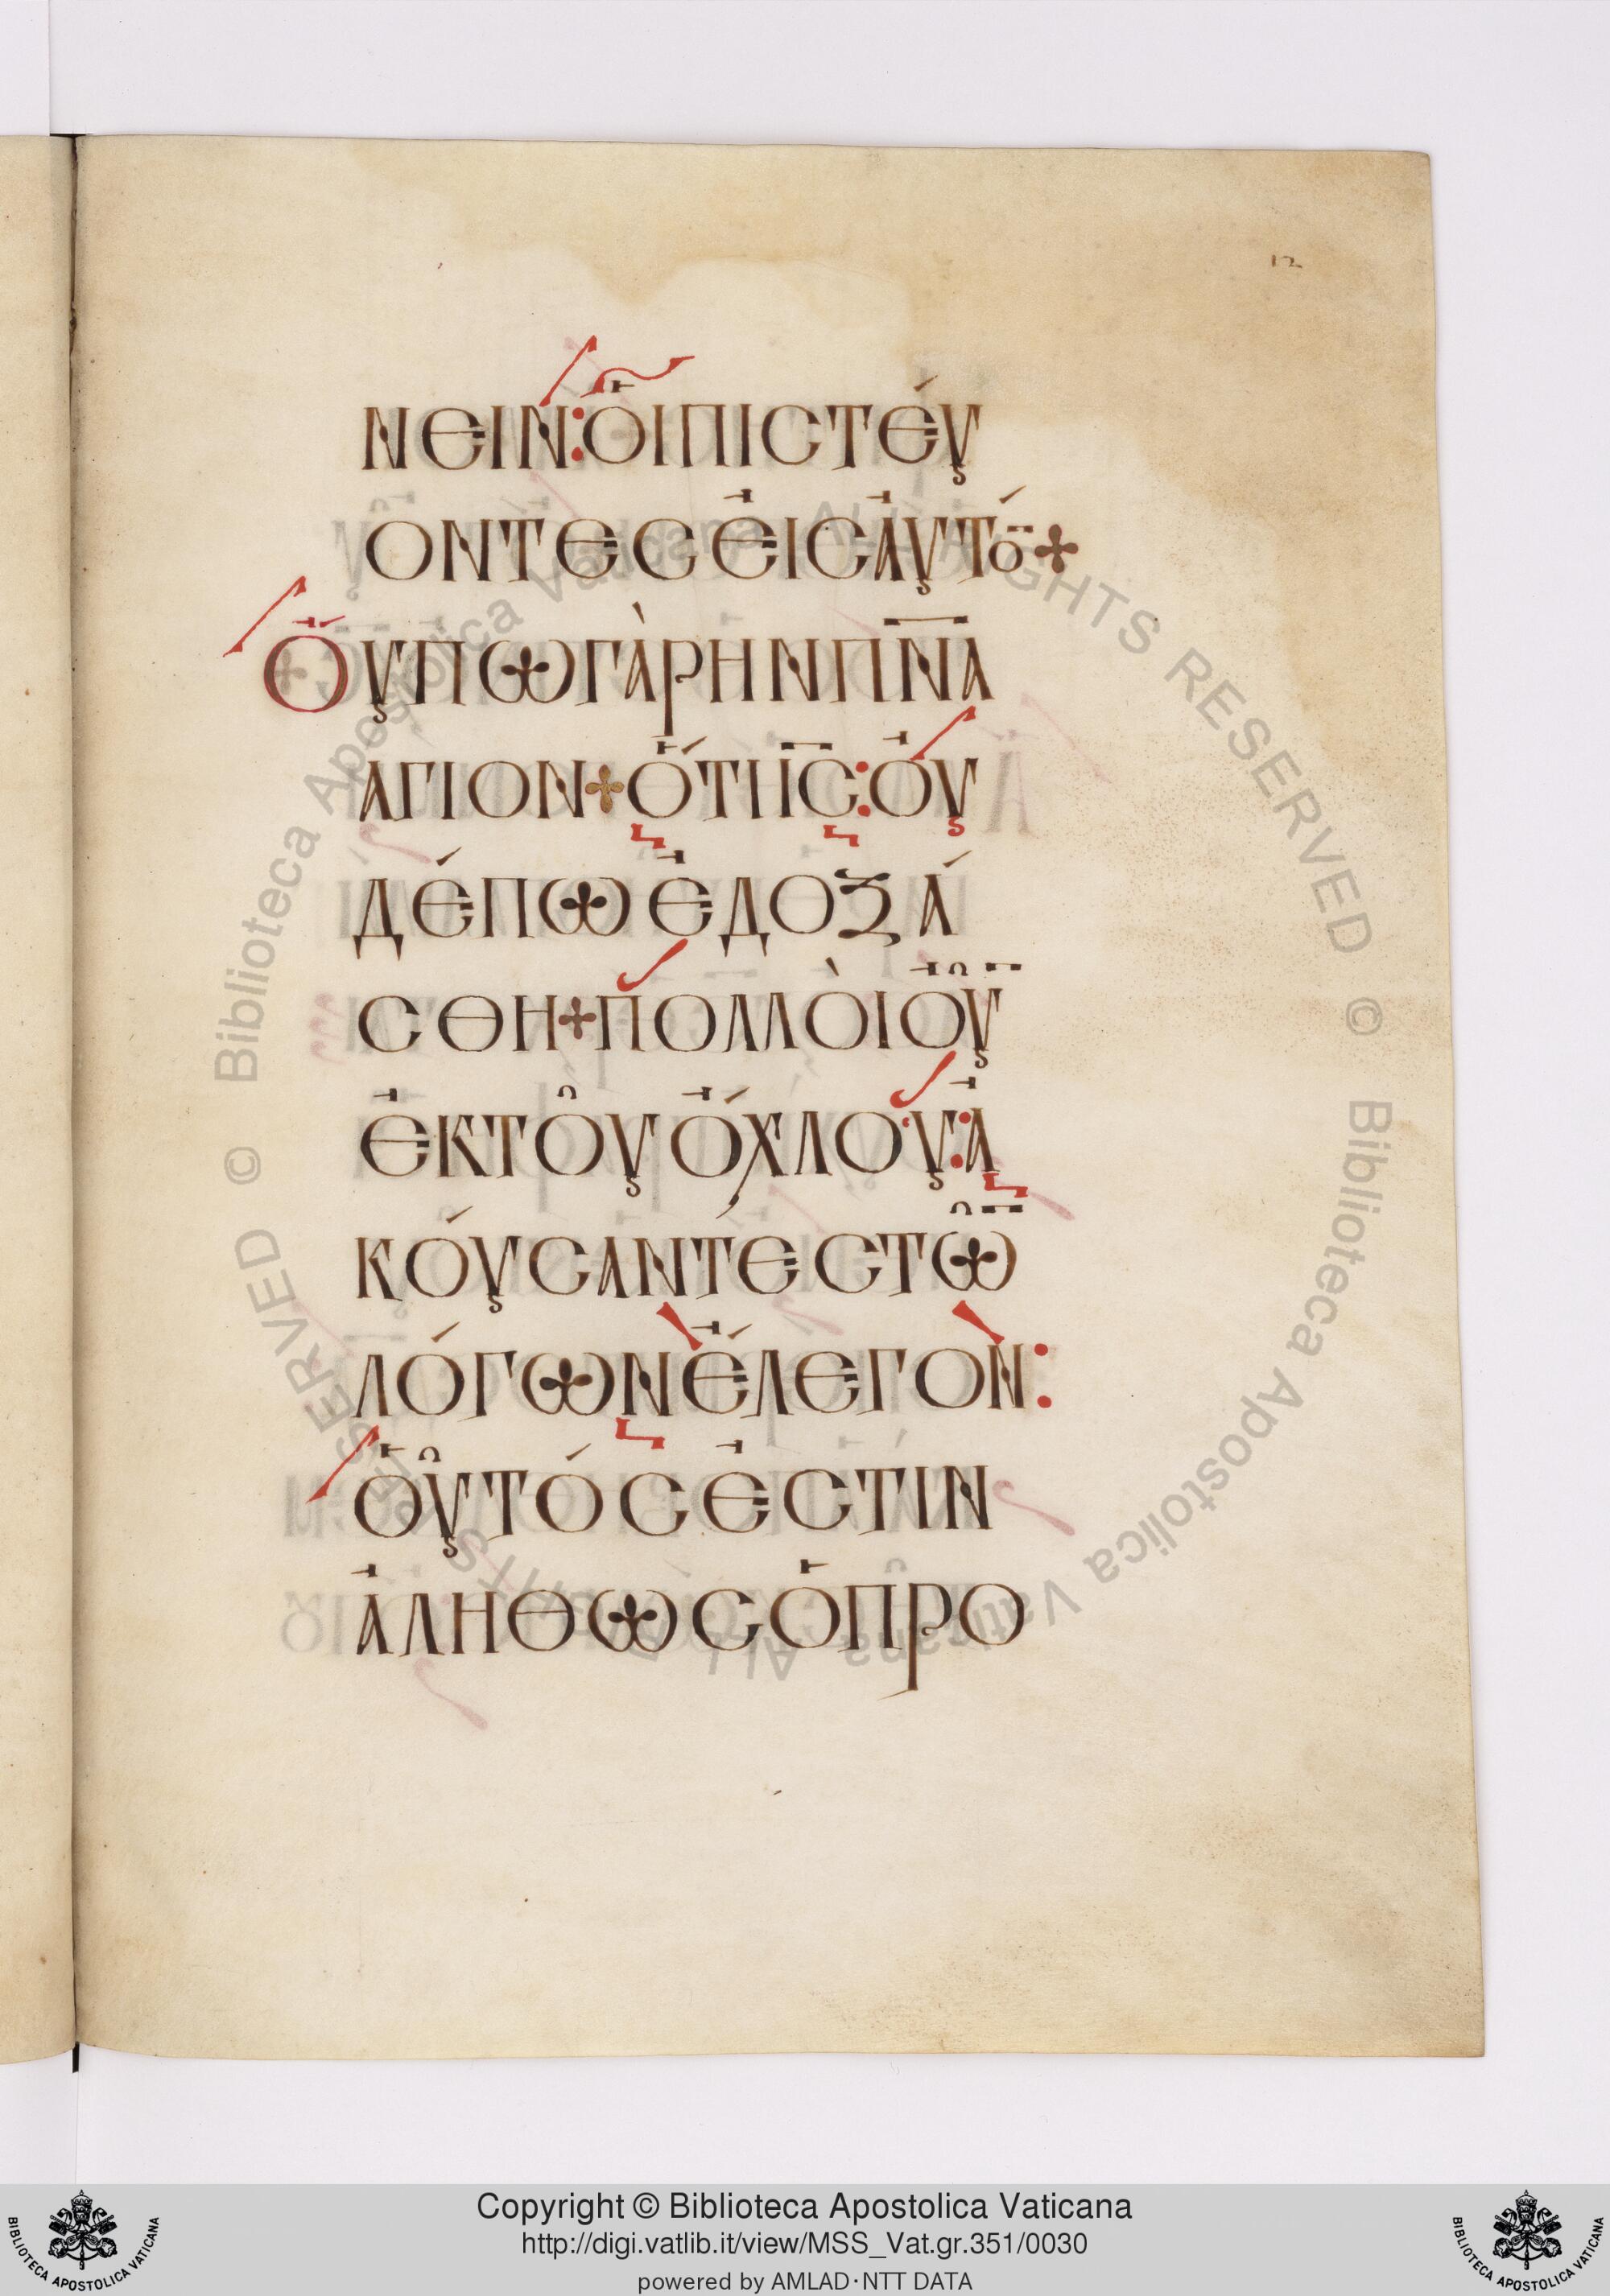 12
ΝΕΙΝ:ὉΙΠΙΣΤΕΎ
ΟΝΤΕΣἘΙΣἈΥΤΌ̅+
ὌΥΠΩΓᾺΡΗΝΠ̅Ν̅Α
ΑΓΙΟΝ+ὍΤΙΙ̅Σ̅:ὈΥ
ΔΈΠΩἘΔΟΞΆ
ΣΘΗ+ΠΟΛΛῸΙΟΥ̓͂̅
ἘΚΤΟ͂ΥὌΧΛΟΥ:Ἀ
ΚΌΥΣΑΝΤΕΣΤΩ͂̅
ΛΌΓΩΝἜΛΕΓΟΝ:
ὉΥ͂ΤΌΣἘΣΤΙΝ
ἈΛΗΘΩΣὉΠΡΟ
© Biblioteca Apostolica Vaticana ALL RIGHTS RESERVED © Biblioteca Apostolica Vaticana ALL RIGHTS RESERVED
BIBLIOTECA APOSTOLICA VATICANA
Copyright © Biblioteca Apostolica Vaticana
http://digi.vatlib.it/view/MSS_Vat.gr.351/0030
powered by AMLAD·NTT DATA
BIBLIOTECA APOSTOLICA VATICANA